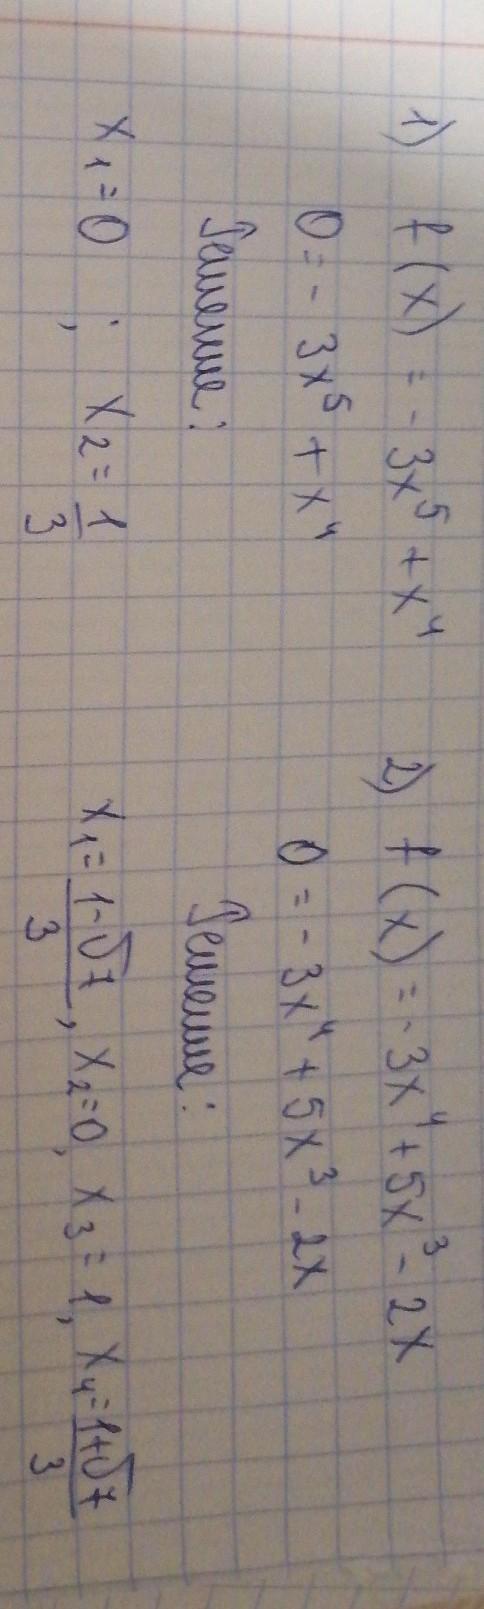 1) f(x) = -3x⁵ + x⁴
0 = -3x⁵ + x⁴
Решение:
x₁ = 0 ; x₂ = 1/3
2) f(x) = -3x⁴ + 5x³ - 2x
0 = -3x⁴ + 5x³ - 2x
Решение:
x₁ = (1-√7)/3, x₂ = 0, x₃ = 1, x₄ = (1+√7)/3